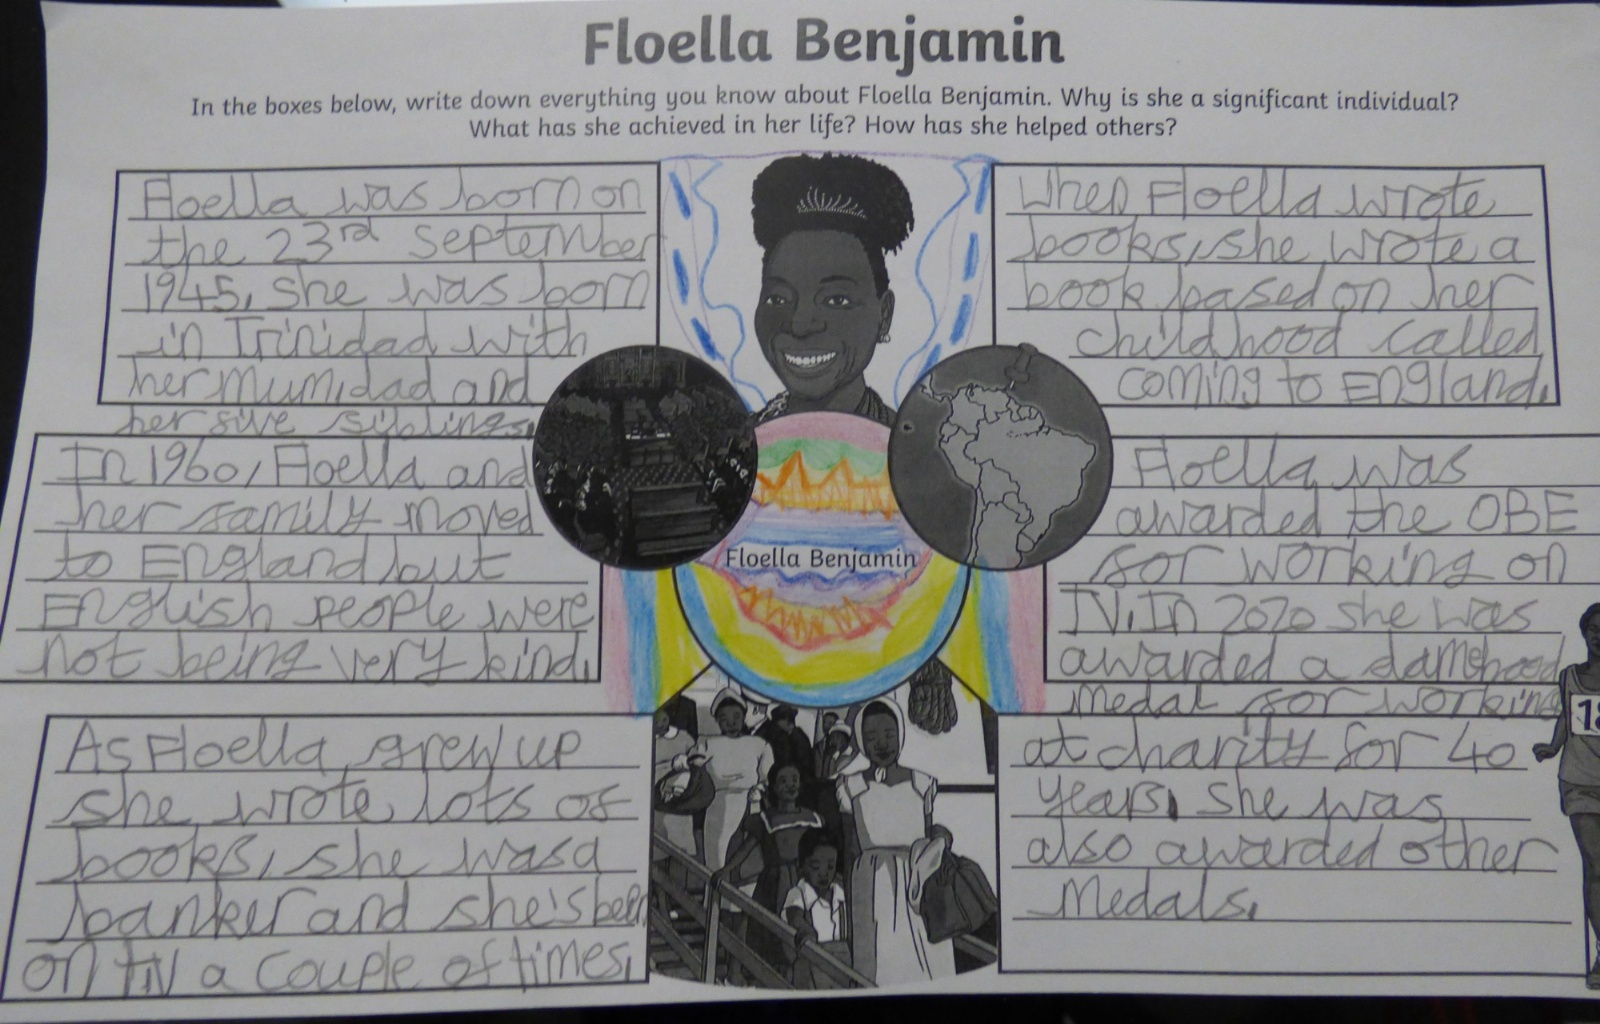 Floella Benjamin
In the boxes below, write down everything you know about Floella Benjamin. Why is she a significant individual?
What has she achieved in her life? How has she helped others?
Floella was born on
the 23rd September
1945, she was born
in Trinidad with
her mum, dad and
her five siblings.
In 1960, Floella and
her family moved
to England but
English people were
not being very kind.
As Floella grew up
she wrote lots of
books, she was a
banker and she's been
on TV a couple of times.
Floella Benjamin
When Floella wrote
books, she wrote a
book based on her
childhood called
coming to England.
Floella was
awarded the OBE
for working on
TV. In 2020 she was
awarded a damehood
medal for working
at charity for 40
years. She was
also awarded other
medals.